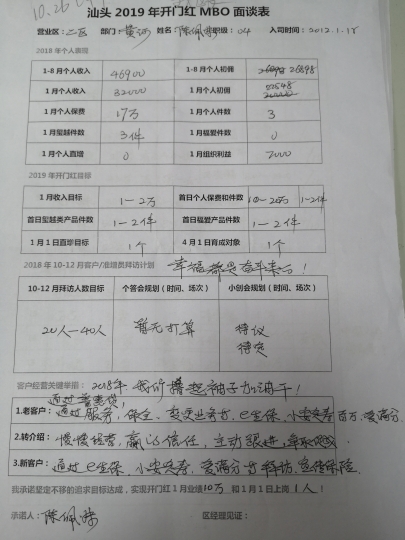 10.26
汕头 2019 年开门红 MBO 面谈表
营业区：二区 部门：黄河 姓名：陈佩 职级：04 入司时间：2012.1.17
2018 年个人表现
1-8月个人收入 46900 1-8月个人初佣 26898 26898
1月个人收入 32000 1月个人初佣 22548 20000
1月个人保费 17万 1月个人件数 3
1月玺越件数 3件 1月福爱件数 0
1月个人直增 0 1月组织利益 7000
2019 年开门红目标
1月收入目标 1-2万 首日个人保费和件数 10-20万 1-2件
首日玺越类产品件数 1-2件 首日福爱产品件数 1-2件
1月1日直增目标 1个 4月1日育成对象 1个
2018 年 10-12 月客户/准增员拜访计划 幸福都是奋斗来的！
10-12月拜访人数目标 个答会规划（时间、场次） 小创会规划（时间、场次）
20人-40人 暂无打算 待议
待定
客户经营关键举措：2018年 我们撸起袖子加油干！
1.老客户：通过服务，保全，变更业务员，e生保，小安
2.转介绍：慢慢经营，赢心信任，主动跟进，
3.新客户：通过e生保，小安 爱满分 拜访，
我承诺坚定不移的追求目标达成，实现开门红1月业绩10万 和1月1日上岗 1人！
承诺人：陈佩 区经理见证：